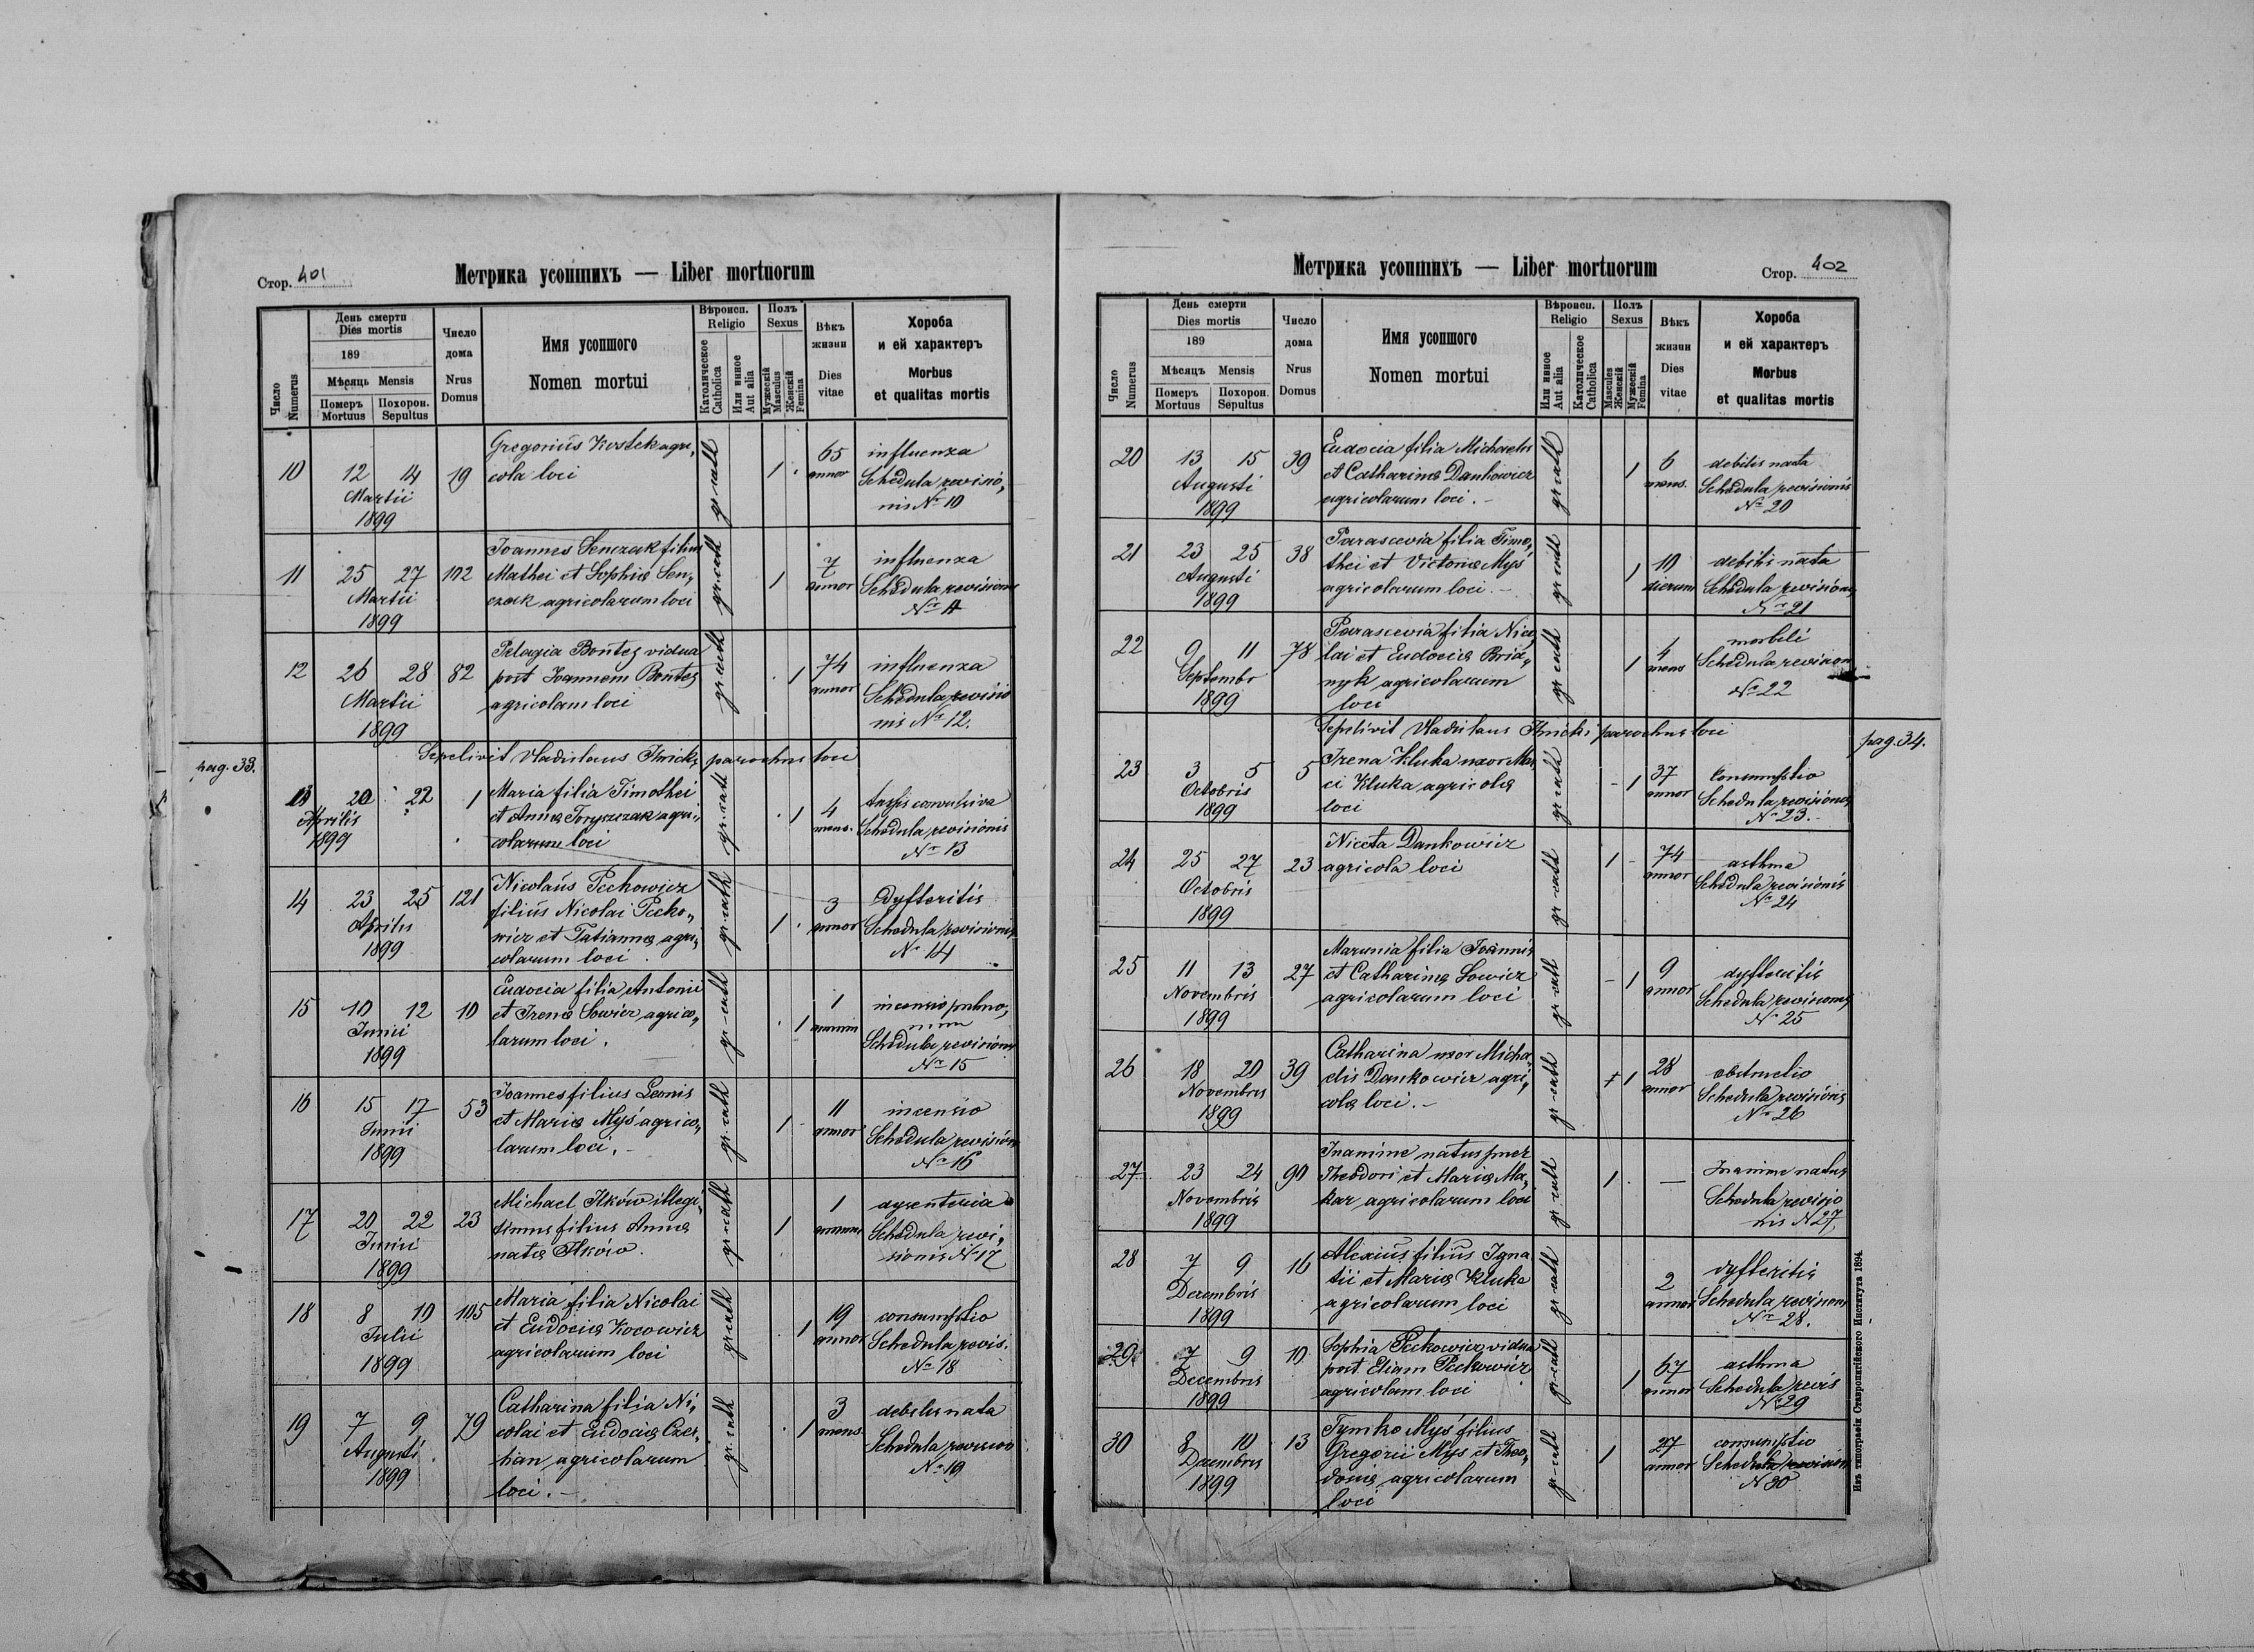 Стор. 401
Метрика усопшихъ — Liber mortuorum
Число Numerus
День смерти
Dies mortis
189
Мѣсяць Mensis
Померъ Mortuus
Похорон. Sepultus
Число дома
Nrus Domus
Имя усопшого
Nomen mortui
Вѣроисп. Religio
Католическое Catholica
Или инное Aut alia
Полъ Sexus
Мужескій Masculus
Женскій Femina
Вѣкъ жизни
Dies vitae
Хороба
и ей характеръ
Morbus
et qualitas mortis
10 12 14 Martii 1899 19
Gregorius Kostek agri„
cola loci
gr-cath 1 65 annor
influenza
Schedula revisio„
nis Nr 10
11 25 27 Martii 1899 102
Joannes Senczak filius
Mathei et Sophia Sen„
czak agricolarum loci
gr-cath 1 7 annor
influenza
Schedula revisionis
Nr 11
12 26 28 Martii 1899 82
Pelagia Bontej vidua
post Joannem Bontej
agricolam loci
gr-cath 1 74 annor
influenza
Schedula revisio
nis Nr 12.
pag. 33.
Sepelivit Vladislaus Ilnicki parochus loci
13 20 22 Aprilis 1899 1
Maria filia Timothei
et Anna Toryszczak agri„
colarum loci
gr-cath 1 4 mens.
tussis convulsiva
Schedula revisionis
Nr 13
14 23 25 Aprilis 1899 121
Nicolaus Peckowicz
filius Nicolai Pecko„
wicz et Tatianna agri„
colarum loci
gr-cath 1 3 annor
dyfteritis
Schedula revisionis
Nr 14
15 10 12 Junii 1899 10
Eudocia filia Antonii
et Irena Sowicz agrico„
larum loci.
gr-cath 1 1 annum
incensio pulmo„
num
Schedula revisionis
Nr 15
16 15 17 Junii 1899 53
Joannes filius Leonis
et Maria Myś agrico„
larum loci.
gr-cath 1 11 annor
incensio
Schedula revision
Nr 16
17 20 22 Junii 1899 23
Michael Ilków illegi„
timus filius Anna
nata Ilków.
gr-cath 1 1 annum
dysenteria
Schedula revi„
sionis Nr 17
18 8 10 Julii 1899 105
Maria filia Nicolai
et Eudocia Kocowicz
agricolarum loci
gr-cath 1 19 annor
consumptio
Schedula revis.
Nr 18
19 7 9 Augusti 1899 79
Catharina filia Ni„
colai et Eudocia Czer„
han agricolarum
loci.
gr-cath 1 3 mens.
debilis nata
Schedula revisio
Nr 19
Метрика усопшихъ — Liber mortuorum
Стор. 402
Число Numerus
День смерти
Dies mortis
189
Мѣсяцъ Mensis
Померъ Mortuus
Похорон. Sepultus
Число дома
Nrus Domus
Имя усопшого
Nomen mortui
Вѣроисп. Religio
Или инное Aut alia
Католическое Catholica
Полъ Sexus
Masculus Женскій
Мужескій Femina
Вѣкъ жизни
Dies vitae
Хороба
и ей характеръ
Morbus
et qualitas mortis
20 13 15 Augusti 1899 39
Eudocia filia Michaelis
et Catharina Dankowicz
agricolarum loci.
gr-cath 1 6 mens.
debilis nata
Schedula revisionis
Nr 20
21 23 25 Augusti 1899 38
Parascevia filia Timo„
thei et Victoria Myś
agricolarum loci.
gr-cath 1 10 dierum
debilis nata
Schedula revisionis
Nr 21
22 9 11 Septembr 1899 78
Parascevia filia Nico„
lai et Eudocia Brid„
nyk agricolarum
loci
gr-cath 1 4 mens
morbili
Schedula revision
Nr 22
Sepelivit Vladislaus Ilnicki parochus loci
pag. 34.
23 3 5 Octobris 1899 5
Irena Kluka uxor Mar„
ci Kluka agricola
loci
gr-cath 1 37 annor
Consumptio
Schedula revisionis
Nr 23.
24 25 27 Octobris 1899 23
Niceta Dankowicz
agricola loci
gr-cath 1 74 annor
asthma
Schedula revisionis
Nr 24
25 11 13 Novembris 1899 27
Marunia filia Joannis
et Catharina Sowicz
agricolarum loci
gr-cath 1 9 annor
dyfteritis
Schedula revisionis
Nr 25
26 18 20 Novembris 1899 39
Catharina uxor Micha„
elis Dankowicz agri„
cola loci.
gr-cath 1 28 annor
obstructio
Schedula revisionis
Nr 26
27 23 24 Novembris 1899 90
Inanime natus puer
Theodori et Maria Ma„
kar agricolarum loci
gr-cath 1 —
Inanime natus
Schedula revisio
nis N 27
28 7 9 Decembris 1899 16
Alexius filius Igna
tii et Maria Kluka
agricolarum loci
gr-cath 2 annor
dyfteritis
Schedula revisionis
Nr 28.
29 7 9 Decembris 1899 10
Sophia Peckowicz vidua
post Eliam Peckowicz
agricolam loci
gr-cath 1 67 annor
asthma
Schedula revis
Nr 29
30 8 10 Decembris 1899 13
Tymko Myś filius
Gregorii Myś et Theo„
dosia agricolarum
loci
gr-cath 1 27 annor
consumptio
Schedula revision
N 30
Изъ типографіи Ставропигійского Института 1894